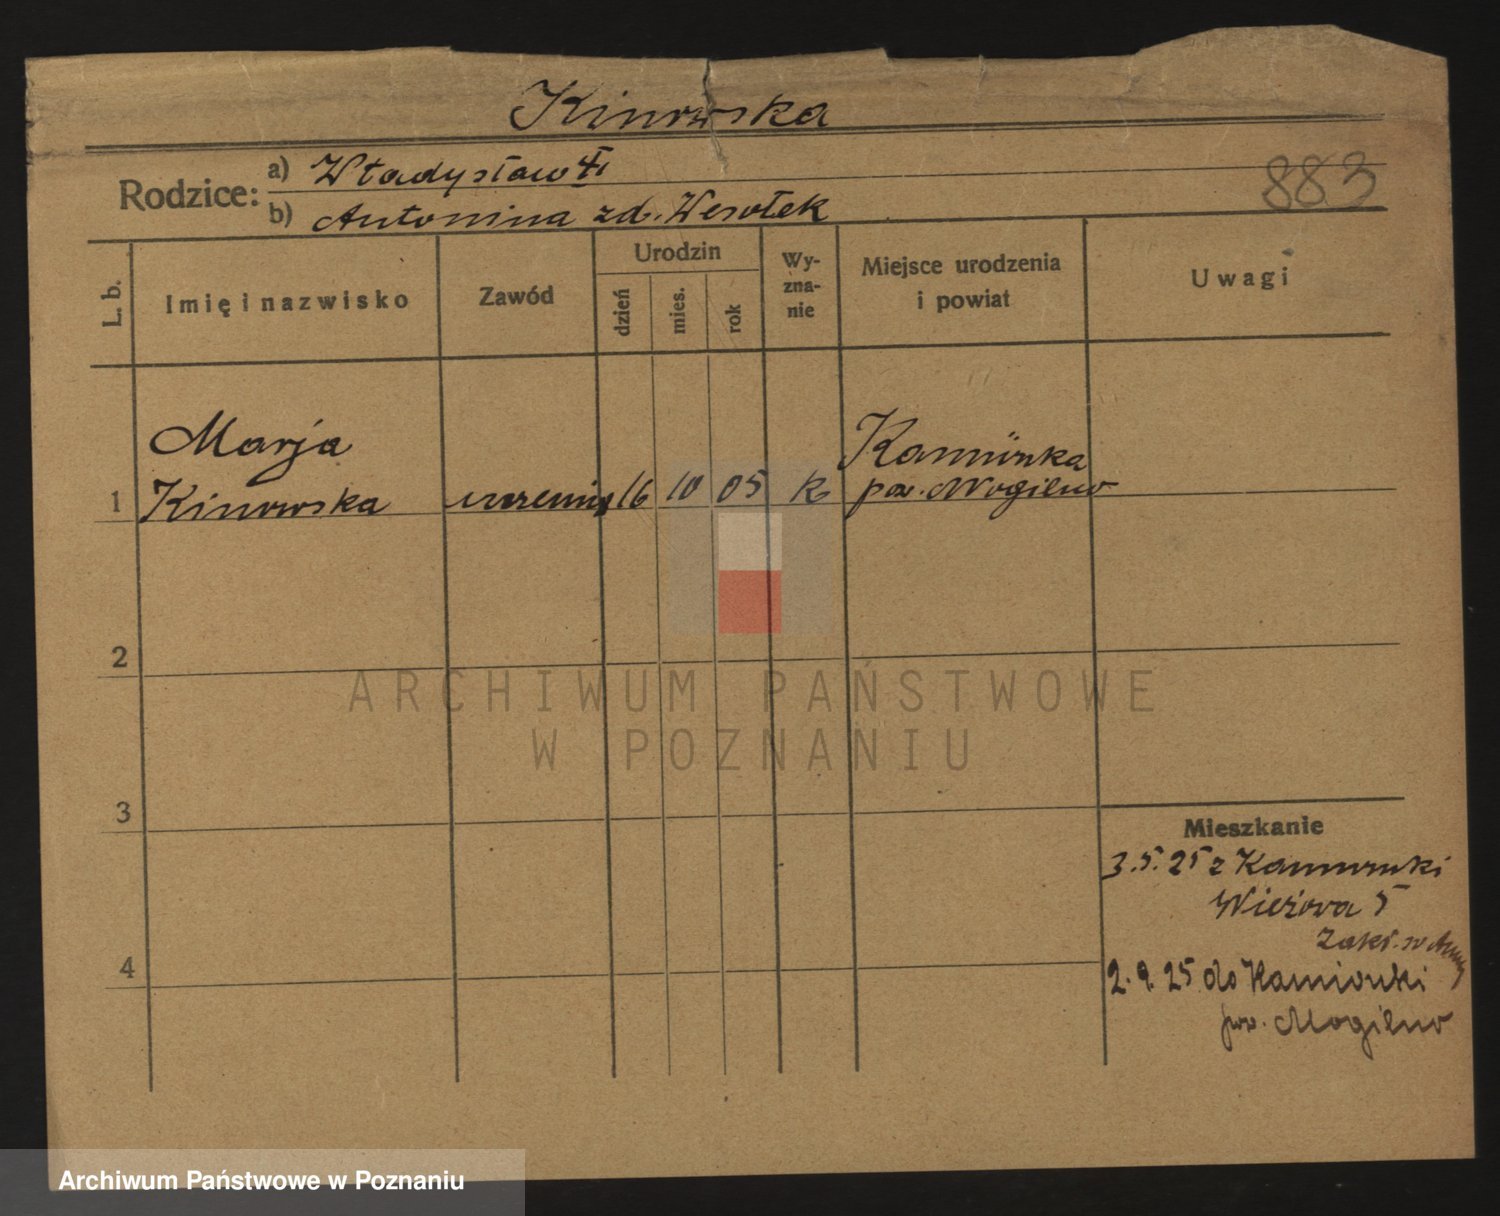 Kinowska
883
Rodzice:
a) Władysław
b) Antonina zd. Wesołek
L. b.
Imię i nazwisko
Zawód
Urodzin
dzień
mies.
rok
Wy-
zna-
nie
Miejsce urodzenia
i powiat
Uwagi
Marja
Kinowska
1
uczenn.
16
10
05
k
Kamionka
pow. Mogilno
2
3
4
Mieszkanie
3.5.25 z Kamionki
Wieżowa 5
Zakł.
2.9.25 do Kamionki
pow. Mogilno
ARCHIWUM PAŃSTWOWE
W POZNANIU
Archiwum Państwowe w Poznaniu